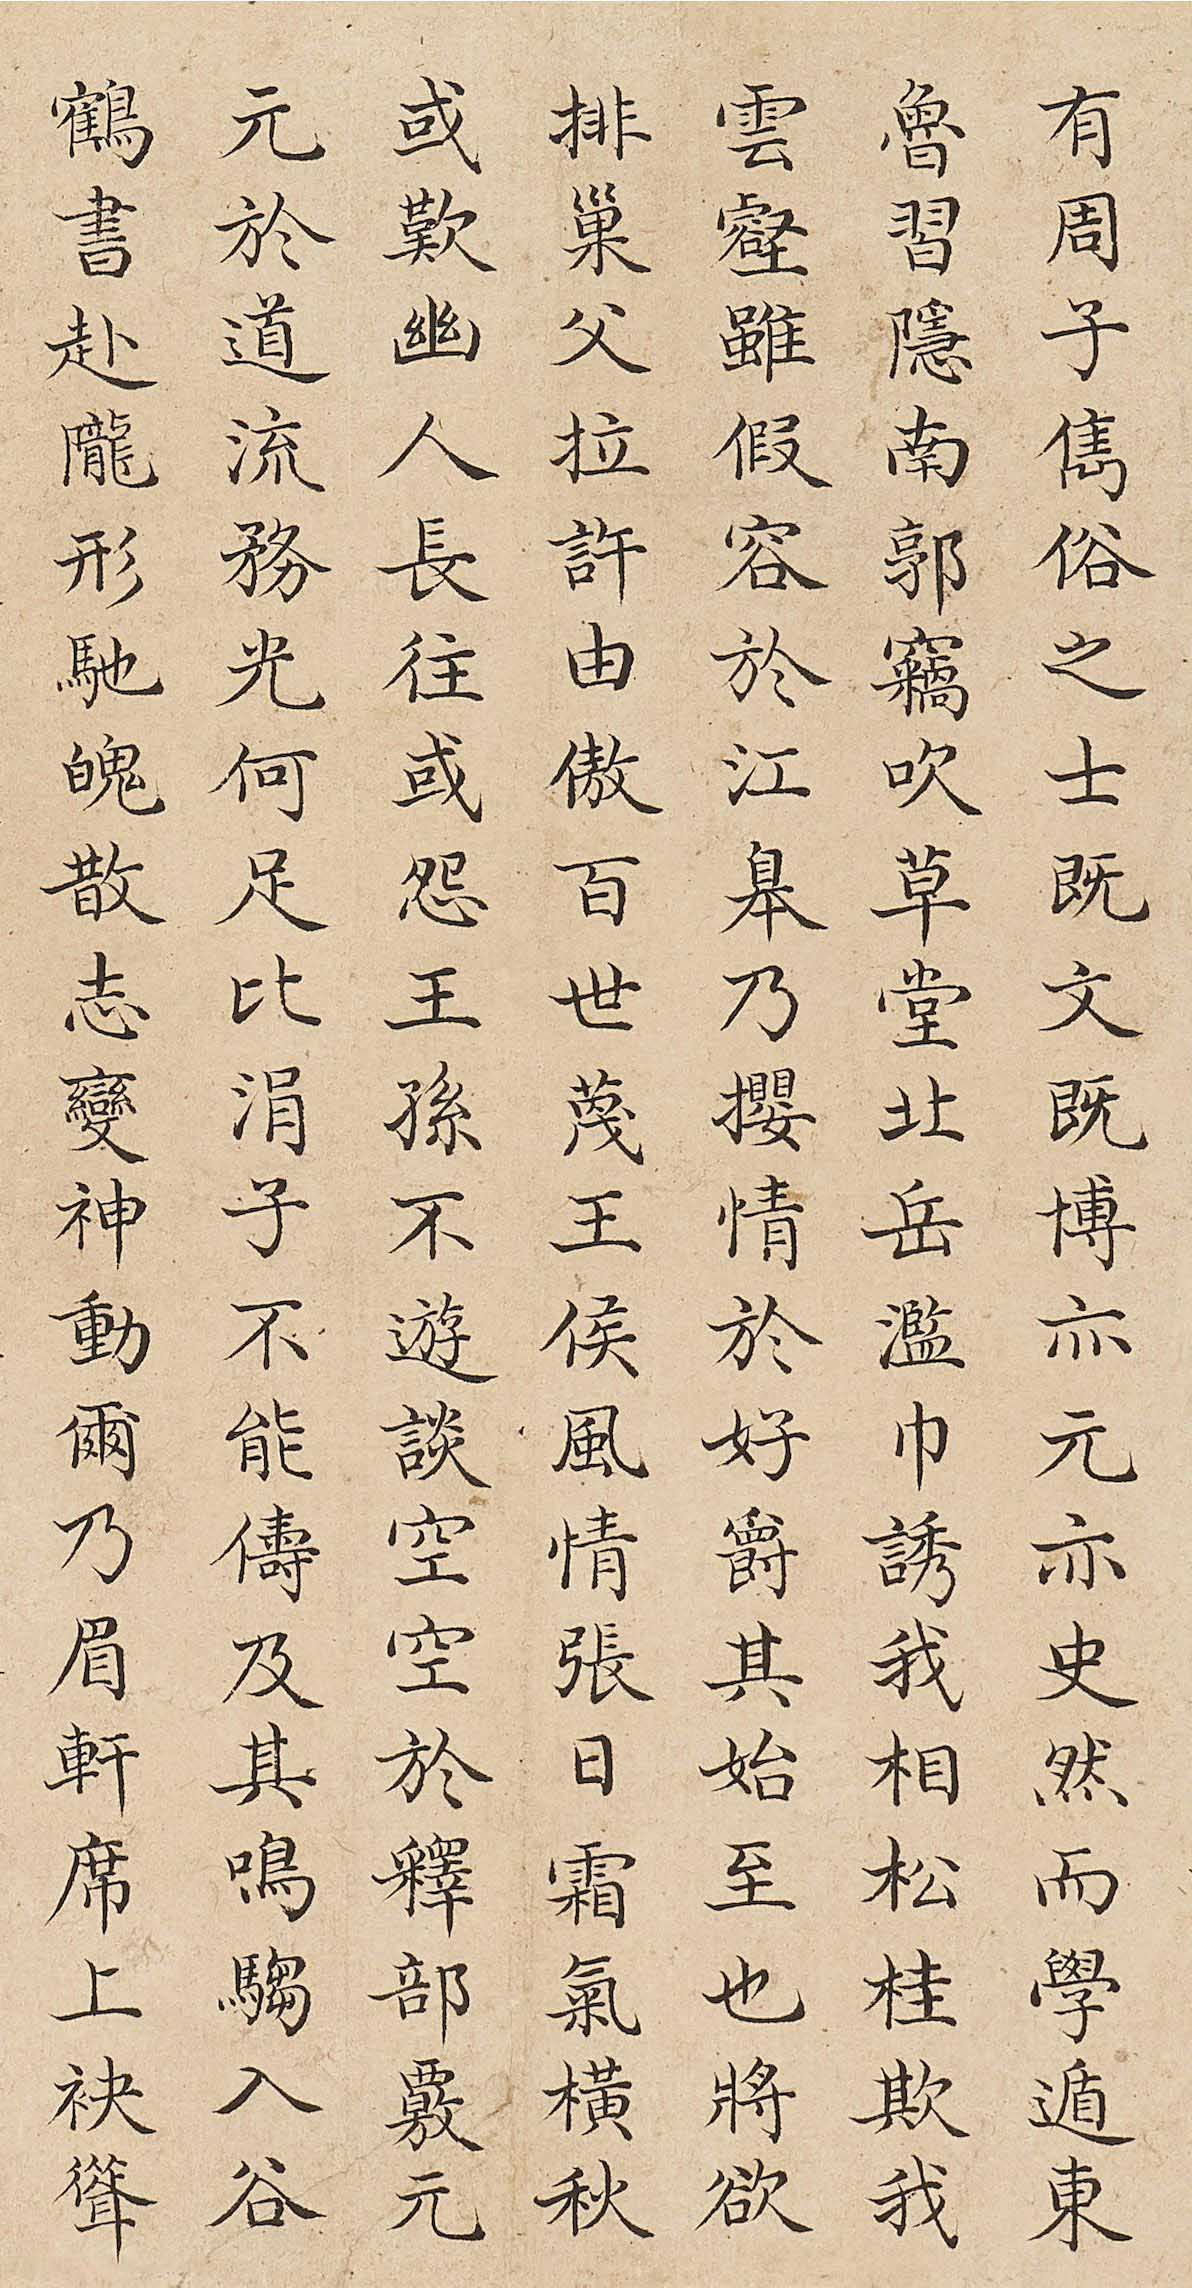 有周子儁俗之士既文既博亦元亦史然而學遁東
魯習隱南郭竊吹草堂北岳濫巾誘我相松桂欺我
雲壑雖假容於江皋乃攖情於好爵其始至也將欲
排巢父拉許由傲百世蔑王侯風情張日霜氣橫秋
或歎幽人長往或怨王孫不遊談空空於釋部覈元
元於道流務光何足比涓子不能儔及其鳴騶入谷
鶴書赴隴形馳魄散志變神動爾乃眉軒席上袂聳